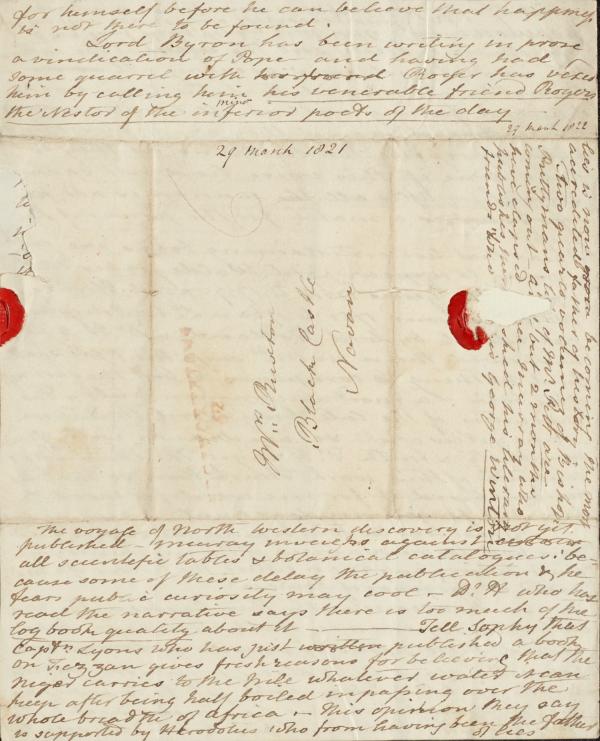 for himself before he can believe that happiness
is not there to be found.
Lord Byron has been writing in prose
a vindication of Pope and having had
some quarrel with his friend Roger has vexed
him by calling him his venerable friend Rogers
the Nestor of the inferior poets of the day
minor
29 March 1822
29 March 1821
Mrs. Ruxton
Black Castle
Navan
les is now become the most
accredited father of history
Two quarto volumes of Bishop
of Mr. R
coming out - but 2 months
have elapsed Murray who
his
George
The voyage of North Western discovery is not yet
published - Murray inveighs against
all scientific tables & botanical catalogues: be-
cause some of these delay the publication & he
fears public curiosity may cool - Dr. H who has
read the narrative says there is too much of the
log book quality about it - Tell Sophy that
Captn. Lyons who has just written published a book
on Fezzan gives fresh reasons for believing that the
Niger carries to the Nile whatever water it can
keep after being half boiled in passing over the
whole breadth of Africa - This opinion they say
is supported by Herodotus who from having been the father
of lies